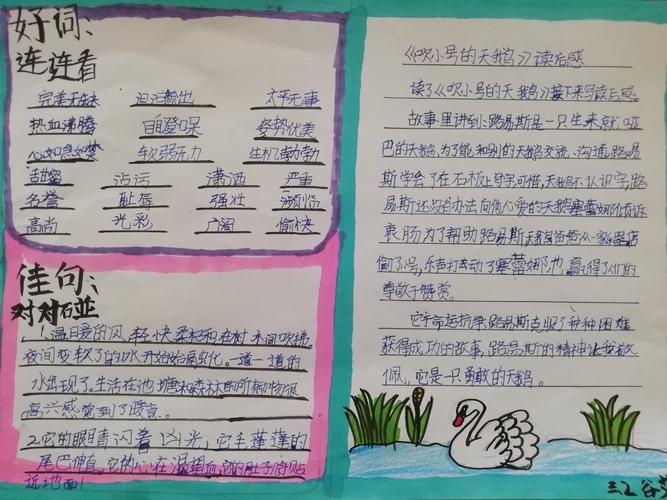 好词：
连连看
完美无缺 汩汩输出 太平无事
热血沸腾 目瞪口呆 姿势优美
心如急如焚 软弱无力 生机勃勃
甜蜜 沾污 潇洒 严重
名誉 耻辱 强壮 濒临
高尚 光彩 广阔 愉快
佳句：
对对碰
1.温暖的风，轻快柔和在树木间吹拂。
夜间变软了的冰开始融化。一道一道的
水出现了。生活在池塘和森林的所动物很
高兴感觉到了暖意。
2.它的眼睛闪着凶光，它毛蓬蓬的
尾巴伸直，它的心在渴望血，它的肚子紧贴
近地面！
《吹小号的天鹅》读后感
读了《吹小号的天鹅》接下来写读后感。
故事里讲到：路易斯是一只生来就哑
巴的天鹅，为了能和别的天鹅交流、沟通，路易
斯学会了在石板上写字，可惜，天鹅不认识字，路
易斯还没有办法向他心爱的天鹅塞蕾娜倾诉
衷肠，为了帮助路易斯，天鹅爸爸从一家乐器店
偷了小号，乐声打动了塞蕾娜，也赢得了人们的
尊敬于赞赏。
它于命运抗争，路易斯克服了种种困难
获得成功的故事，路易斯的精神让我敬
佩，它是一只勇敢的天鹅。